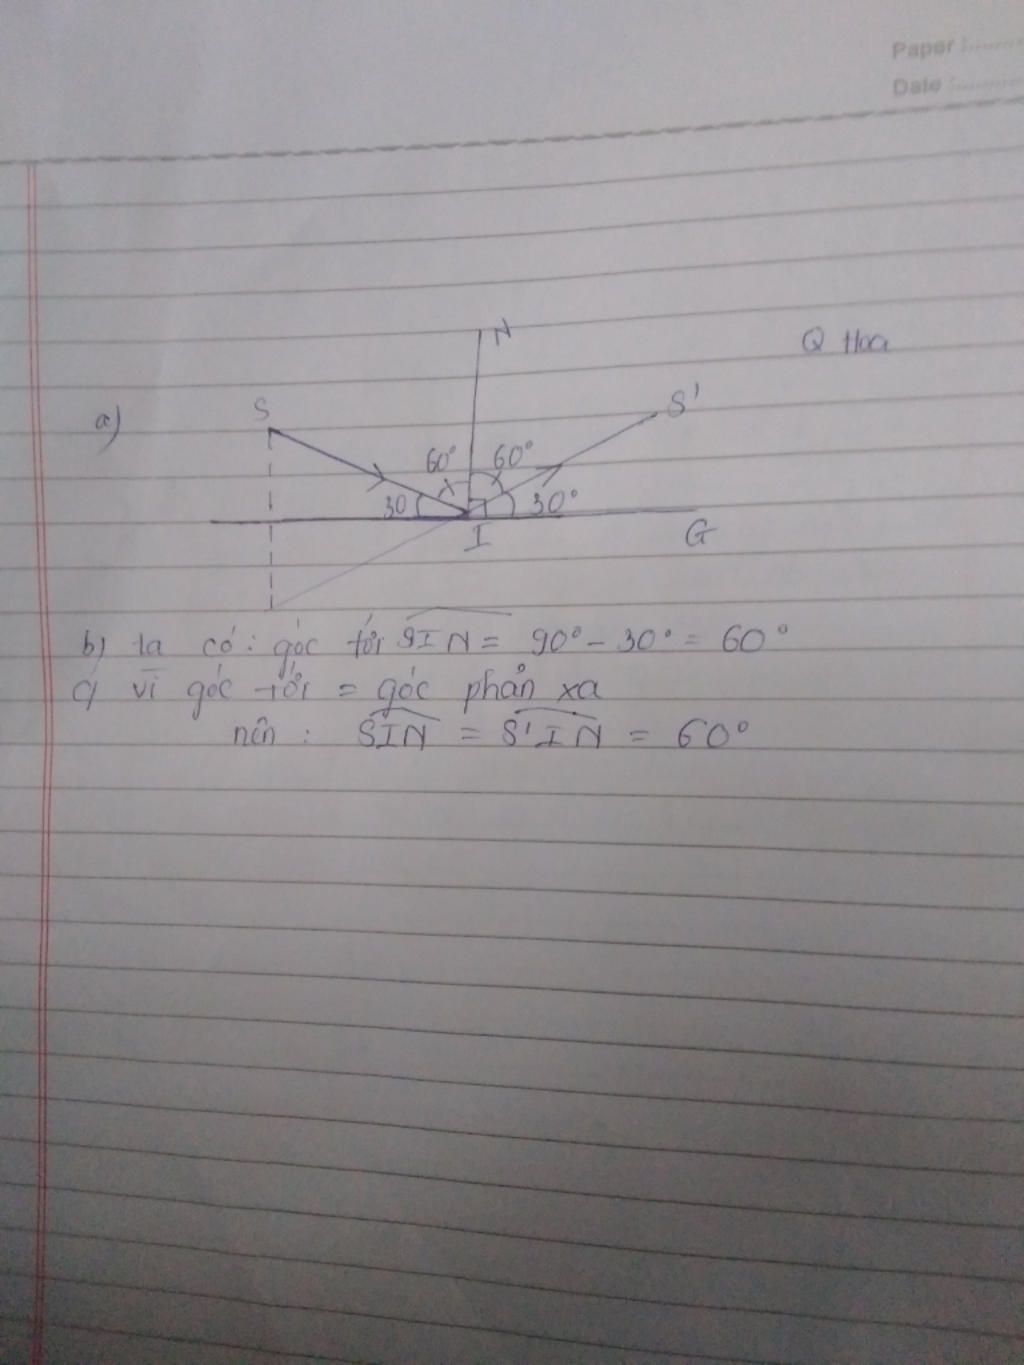 Paper :........
Date :........
N
Q Hoa
a)
S
S'
60° 60°
30 30°
I
G
b) ta có: góc tới SIN = 90° - 30° = 60°
c) vì góc tới = góc phản xa
nên : SIN = S'IN = 60°